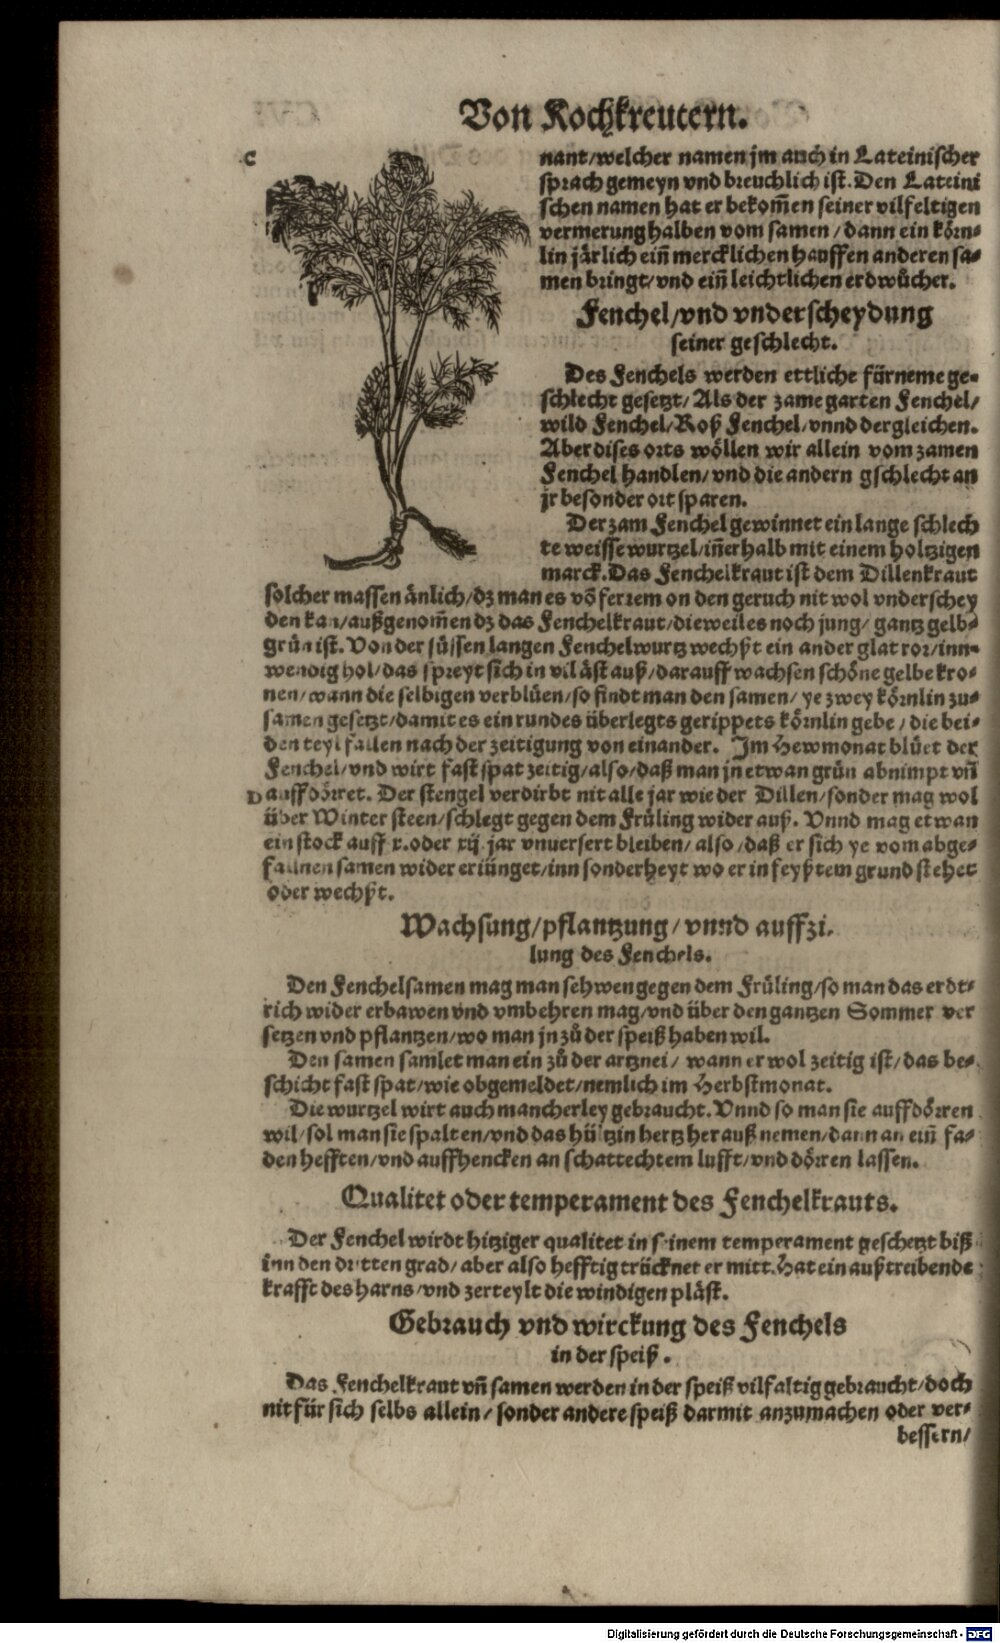 Von Kochkreutern.
C
nant/welcher namen jm auch in Lateinischer
sprach gemeyn vnd breuchlich ist. Den Lateini
schen namen hat er bekom̃en seiner vilfeltigen
vermerung halben vom samen / dann ein körn-
lin järlich eiñ mercklichen hauffen anderen sa-
men bringt/vnd eiñ leichtlichen erdwůcher.
Fenchel/vnd vnderscheydung
seiner geschlecht.
Des Fenchels werden ettliche fürneme ge-
schlecht gesetzt/Als der zame garten Fenchel/
wild Fenchel/Roß Fenchel/vnnd dergleichen.
Aber dises orts wöllen wir allein vom zamen
Fenchel handlen/vnd die andern gschlecht an
jr besonder ort sparen.
Der zam Fenchel gewinnet ein lange schlech
te weisse wurtzel/iñerhalb mit einem holtzigen
marck. Das Fenchelkraut ist dem Dillenkraut
solcher massen änlich/dz man es võ ferrem on den geruch nit wol vnderschey
den kan/außgenom̃en dz das Fenchelkraut/dieweil es noch jung/ gantz gelb-
grün ist. Von der süssen langen Fenchelwurtz wechßt ein ander glat ror/inn-
wendig hol/das spreyt sich in vil äst auß/darauff wachsen schöne gelbe kro-
nen/wann die selbigen verblüen/so findt man den samen/ ye zwey körnlin zu-
samen gesetzt/damit es ein rundes überlegts gerippets körnlin gebe / die bei-
den teyl fallen nach der zeitigung von einander. Im Hewmonat blüet der
Fenchel/vnd wirt fast spat zeitig/also/daß man jn etwan grün abnimpt vñ
D auffdörret. Der stengel verdirbt nit alle jar wie der Dillen/sonder mag wol
über Winter steen/schlegt gegen dem Früling wider auß. Vnnd mag etwan
ein stock auff x. oder xij. jar vnuersert bleiben/ also/daß er sich ye vom abge-
fallnen samen wider eriünget/inn sonderheyt wo er in feyßtem grund stehet
oder wechßt.
Wachsung/pflantzung/ vnnd auffzi-
lung des Fenchels.
Den Fenchelsamen mag man sehwen gegen dem Früling/so man das erdt-
rich wider erbawen vnd vmbehren mag/vnd über den gantzen Sommer ver
setzen vnd pflantzen/wo man jn zů der speiß haben wil.
Den samen samlet man ein zů der artznei/ wann er wol zeitig ist/das be-
schicht fast spat/wie obgemeldet/nemlich im Herbstmonat.
Die wurtzel wirt auch mancherley gebraucht. Vnnd so man sie auffdörren
wil/sol man sie spalten/vnd das hültzin hertz herauß nemen/dann an eiñ fa-
den hefften/vnd auffhencken an schattechtem lufft/vnd dörren lassen.
Qualitet oder temperament des Fenchelkrauts.
Der Fenchel wirdt hitziger qualitet in seinem temperament geschetzt biß
inn den dritten grad/aber also hefftig trücknet er nitt. Hat ein außtreibende
krafft des harns/vnd zerteylt die windigen pläst.
Gebrauch vnd wirckung des Fenchels
in der speiß.
Das Fenchelkraut vñ samen werden in der speiß vilfaltig gebraucht/doch
nit für sich selbs allein/ sonder andere speiß darmit anzumachen oder ver-
bessern/
Digitalisierung gefördert durch die Deutsche Forschungsgemeinschaft - DFG